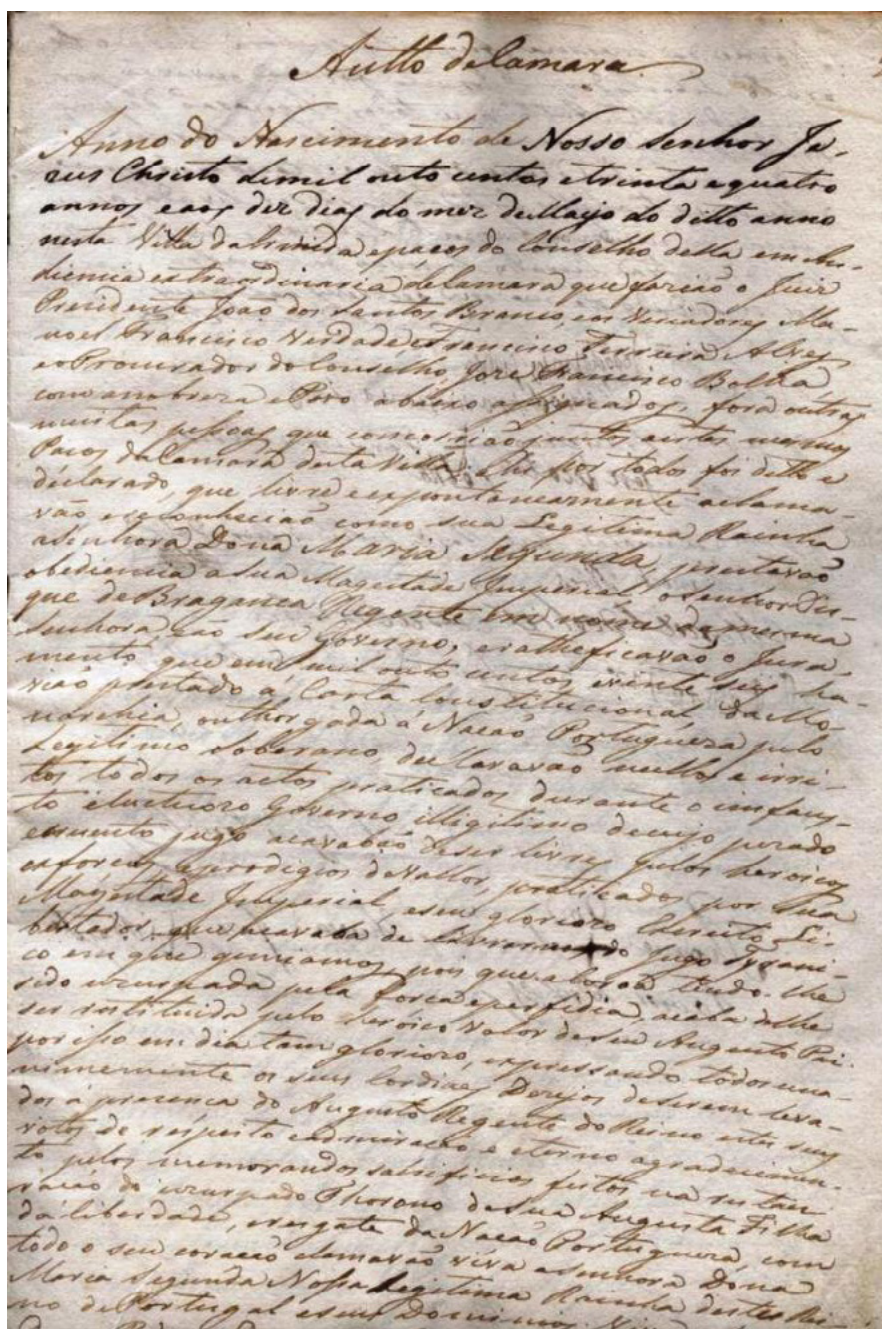 Autto de Camara
Anno do Nascimento de Nosso Senhor Je-
zus Christo de mil outo centos e trinta e quatro
annos e aos dez dias do mez de Mayo do ditto anno
nesta Villa da epaços do Conselho della em Au-
diencia extraordinaria de Camara que fazião o Juiz
Prezidente João dos Santos Branco, e os Veriadores Ma-
noel Francisco Verdade, e Francisco Ferreira Alves,
e o Procurador do Conselho Jozé Francisco Bolha
com a nobreza e Povo abaixo assignados, fora outras
muitas pessoas que concorrião juntos a estes mesmos
Paços da Camara desta Villa e ahi por todos foi ditto e
declarado, que livre e expontaneamente aclama-
vão e reconhecião como sua Legitima Rainha
a Senhora Dona Maria Segunda, prestavão
obediencia a Sua Magestade Imperial o Senhor Du-
que de Bragança Regente em nome da mesma
Senhora, e ao seu Governo, e ratheficavão o Jura-
mento que em mil outo centos e vinte seis ha-
vião prestado á Carta Constitucional da Mo-
narchia, outhorgada á Nação Portugueza pelo
Legitimo Soberano declaravão nullos e irri-
tos todos os actos praticados durante o infaus-
to e luctuozo Governo illigitimo de cujo pezado
e cruento jugo acavabão de ser livres pelos heroicos
esforços, e prodigios de vallor, praticados por Sua
Magestade Imperial, e seu gloriozo Exercito Li-
bertador, que acavada de livrarnos do Jugo Tyrani-
co em que gemiamos, pois que a Coroa tendo-lhe
sido uzurpada pela força e perfidia, acaba de lhe
ser restituida pelo heroico valor de seu Augusto Pai.
por isso em dia tam gloriozo, expressando todos una-
nimemente os seus Cordiaes Dezejos de serem leva-
dos á prezença do Augusto Regente do Reino estes seus
votos de respeito e admiração e eterno agradecimen-
to pelos memorandos sacrificios feitos na restau-
ração do uzurpado Throno de Sua Augusta Filha
da liberdade, e resgate da Nação Portugueza, com
todo o seu coração clamavão viva a Senhora Dona
Maria Segunda Nossa Legitima Rainha destes Rei-
no de Portugal e seus Dominios